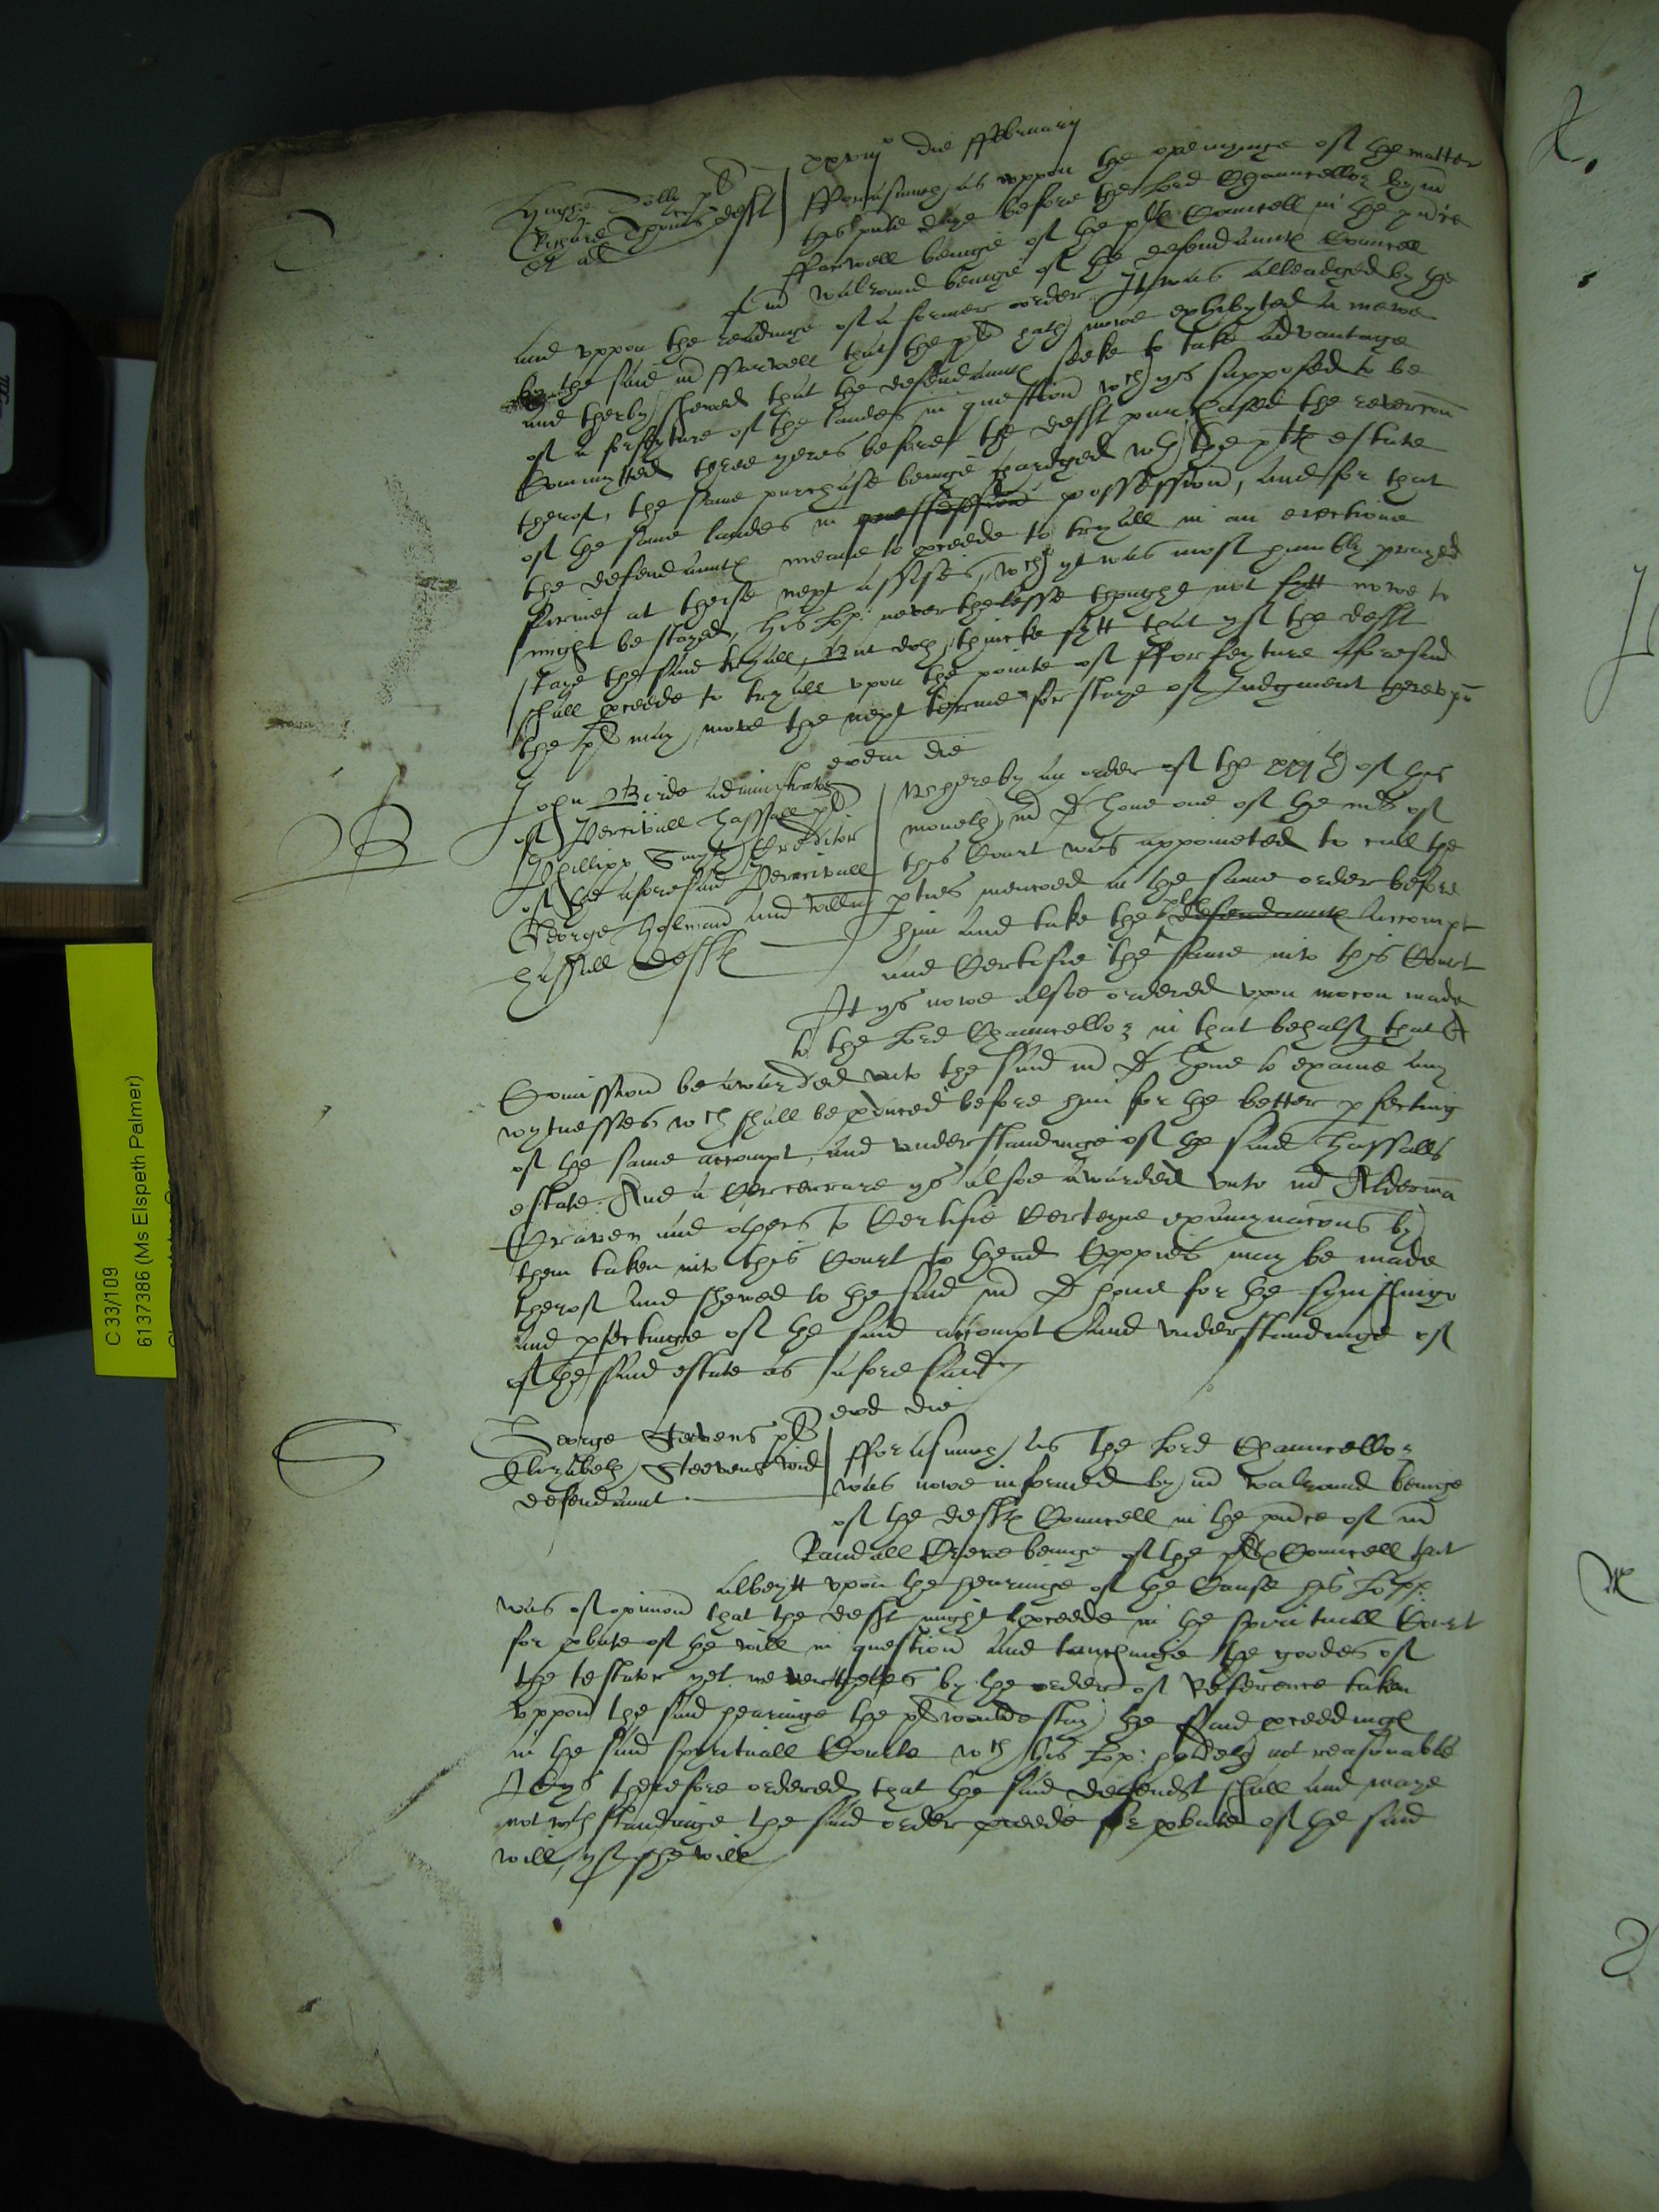 xxviijo die ffebruarij
Jolly pl
Richard Thomas deft
et al
fforasmuch as uppon the openynge of the matter
this present daye before the Lord Chauncellor by mr
ffarwell beinge of the pls Councell in the pnce
of mr Walrond beinge of the defendaunts Councell
and uppon the readinge of a former order It was alleadged by the
by the said mr ffarwell that the pl hath nowe exhibyted a newe
and therby shewed that the defendaunts seeke to take advantage
of a forfeyture of the landes in question wch ys supposed to be
Commytted three yeres before the deft purchased the revercon
therof, the same purchase beinge chardged wth the pls estate
of the same landes in possession possession, and for that
the defendaunts meane to pceede to tryall in an eiectione
firme at theise next assises, wch yt was most humbly prayed
might be stayed, his Lop: neverthelesse thought not fytt nowe to
staye the said tryall, But doth thincke fytt that yf the deft
shall pceede to tryall upon the pointe of fforfeyture aforesaid
the pl may move the next terme for staye of Judgment thereupon
eodem die
B
John Birde administrator
of Percivall Hassall pl
Phillipp Smyth Creditor
of the aforesaid Percivall
George Holman and Willm
Hassall defts
Whereby an order of the xxjth of this
moneth mr D Hone one of the mrs of
this Court was appointed to call the
pties mencoed in the same order before
him and take the pls defendaunts Accompt
and Certifie the same into this Court
It ys nowe alsoe ordered upon mocon made
to the Lord Chauncellor in that behalf that a
Comission be awarded unto the said mr D Hone to exaîe any
wytnesses wch shall be pduced before him for the better pfecting
of the same accompt, and understandinge of the said Hassalls
estate. And a Cerciorare ys alsoe awarded unto mr Alderma
Craven and others to Certifie Certeyne exaymynacons by
them taken into this Court to thend Coppies may be made
therof and shewed to the said mr D Hone for the fynishinge
and pfectinge of the said accompt and understandinge of
of the said estate as aforesaid
eod die
S
George Steevens pl
Elizabeth Steevens wid
defendaunt
fforasmuch as the Lord Chauncellor
was nowe informed by mr Walrond beinge
of the defts Councell in the pnce of mr
Randall Crewe beinge of the pls Councell that
albeytt upon the hearinge of the Cause his Lopp:
was of opinion that the deft might pceede in the spirituall Court
for pbate of the will in question and touchinge the goodes of
the testator yet nevertheles by the order of Reference taken
uppon the said hearinge the pl woulde stay the said pceedings
in the said spirituall Courte wch his Lop: holdeth not reasonable
It ys therefore ordered that the said defendt shall and maye
notwthstandinge the said order pceede for pbate of the said
will, yf she will
C 33/109
6137386 (Ms Elspeth Palmer)